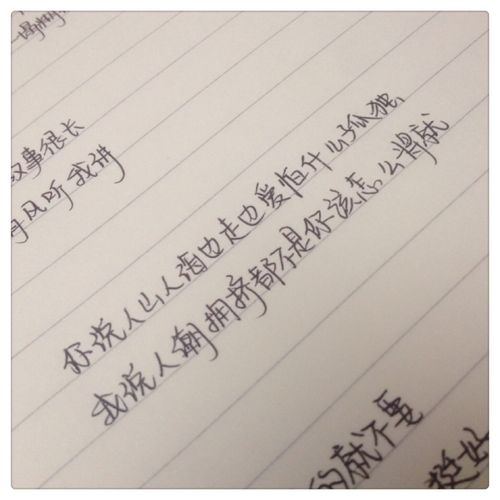 故事很长
风听我讲
你说人山人海边走边爱怕什么孤独
我说人潮拥挤都不是你该怎么将就
的就不要
挺好